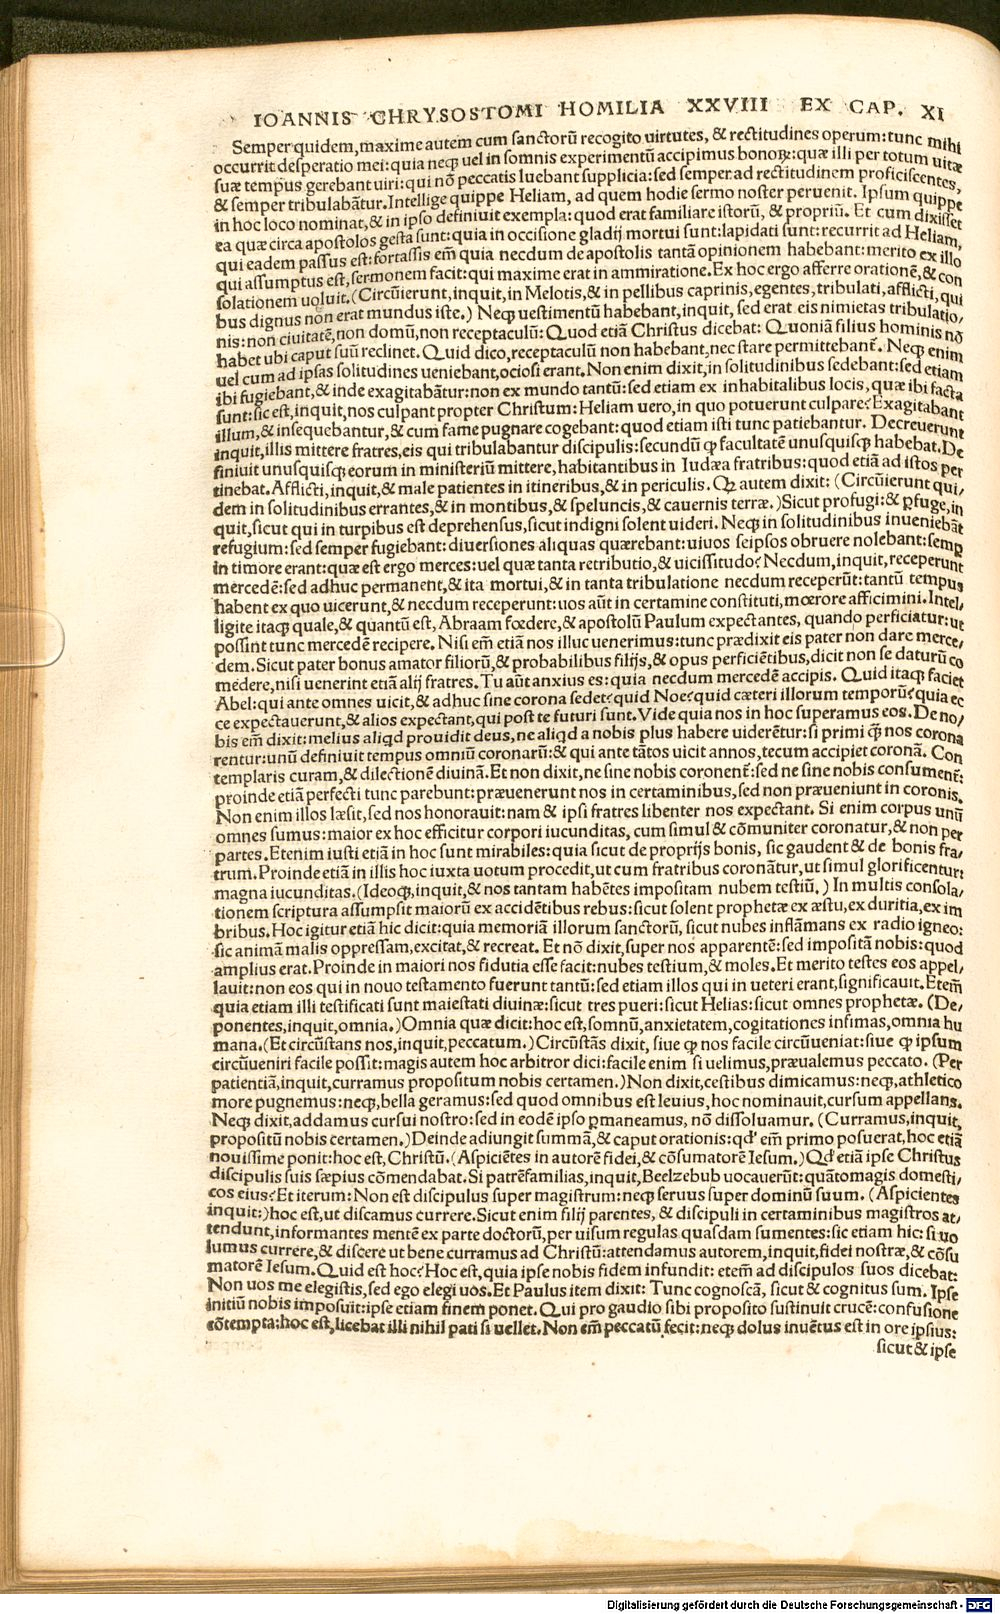 IOANNIS CHRYSOSTOMI HOMILIA XXVIII EX CAP. XI
Semper quidem,maxime autem cum sanctorū recogito uirtutes, & rectitudines operum:tunc mihi
occurrit desperatio mei:quia neqȝ uel in somnis experimentū accipimus bonoꝝ:quæ illi per totum uitæ
suæ tempus gerebant uiri:qui nō peccatis luebant supplicia:sed semper ad rectitudinem proficiscentes,
& semper tribulabātur.Intellige quippe Heliam, ad quem hodie sermo noster peruenit. Ipsum quippe
in hoc loco nominat,& in ipso definiuit exempla:quod erat familiare istorū, & propriū. Et cum dixisset
ea quæ circa apostolos gesta sunt:quia in occisione gladij mortui sunt:lapidati sunt:recurrit ad Heliam,
qui eadem passus est:fortassis em̄ quia necdum de apostolis tantā opinionem habebant:merito ex illo
qui assumptus est,sermonem facit:qui maxime erat in ammiratione.Ex hoc ergo afferre orationē,& con
solationem uoluit.(Circūierunt,inquit,in Melotis,& in pellibus caprinis,egentes,tribulati,afflicti,qui
bus dignus non erat mundus iste.) Neqȝ uestimentū habebant,inquit, sed erat eis nimietas tribulatio/
nis:non ciuitatē,non domū,non receptaculū: Quod etiā Christus dicebat: Quoniā filius hominis nō
habet ubi caput suū reclinet. Quid dico,receptaculū non habebant,nec stare permittebant̄. Neqȝ enim
uel cum ad ipsas solitudines ueniebant,ociosi erant. Non enim dixit,in solitudinibus sedebant:sed etiam
ibi fugiebant,& inde exagitabātur:non ex mundo tantū:sed etiam ex inhabitalibus locis,quæ ibi facta
sunt:sic est,inquit,nos culpant propter Christum:Heliam uero,in quo potuerunt culpare? Exagitabant
illum,& insequebantur,& cum fame pugnare cogebant:quod etiam isti tunc patiebantur. Decreuerunt
inquit,illis mittere fratres,eis qui tribulabantur discipulis:secundū ꝙ facultatē unusquisqȝ habebat.De
finiuit unusquisqȝ eorum in ministeriū mittere,habitantibus in Iudæa fratribus:quod etiā ad istos per
tinebat.Afflicti,inquit,& male patientes in itineribus,& in periculis. Qȝ autem dixit: (Circūierunt qui/
dem in solitudinibus errantes,& in montibus,& speluncis,& cauernis terræ.)Sicut profugi:& ꝑfuge,in
quit,sicut qui in turpibus est deprehensus,sicut indigni solent uideri. Neqȝ in solitudinibus inueniebāt
refugium:sed semper fugiebant:diuersiones aliquas quærebant:uiuos seipsos obruere nolebant:semꝑ
in timore erant:quæ est ergo merces:uel quæ tanta retributio,& uicissitudo? Necdum,inquit,receperunt
mercedē:sed adhuc permanent,& ita mortui,& in tanta tribulatione necdum receperūt:tantū tempus
habent ex quo uicerunt,& necdum receperunt:uos aūt in certamine constituti,mœrore afficimini.Intel/
ligite itaqȝ quale,& quantū est, Abraam fœdere,& apostolū Paulum expectantes, quando perficiatur:ut
possint tunc mercedē recipere. Nisi em̄ etiā nos illuc uenerimus:tunc prædixit eis pater non dare merce/
dem.Sicut pater bonus amator filiorū,& probabilibus filijs,& opus perficiētibus,dicit non se daturū co
medere,nisi uenerint etiā alij fratres.Tu aūt anxius es:quia necdum mercedē accipis. Quid itaqȝ faciet
Abel:qui ante omnes uicit,& adhuc sine corona sedet? quid Noe? quid cæteri illorum temporū? quia ec
ce expectauerunt,& alios expectant,qui post te futuri sunt. Vide quia nos in hoc superamus eos. De no/
bis em̄ dixit:melius aliqd prouidit deus,ne aliqd a nobis plus habere uiderētur:si primi q̄ȝ nos corona
rentur:unū definiuit tempus omniū coronarū:& qui ante tātos uicit annos,tecum accipiet coronā. Con
templaris curam,& dilectionē diuinā.Et non dixit,ne sine nobis coronent̄:sed ne sine nobis consument̄:
proinde etiā perfecti tunc parebunt:præuenerunt nos in certaminibus,sed non præueniunt in coronis.
Non enim illos læsit,sed nos honorauit:nam & ipsi fratres libenter nos expectant. Si enim corpus unū
omnes sumus:maior ex hoc efficitur corpori iucunditas, cum simul & cōmuniter coronatur,& non per
partes.Etenim iusti etiā in hoc sunt mirabiles:quia sicut de proprijs bonis, sic gaudent & de bonis fra/
trum.Proinde etiā in illis hoc iuxta uotum procedit,ut cum fratribus coronātur,ut simul glorificentur:
magna iucunditas.(Ideoqȝ,inquit,& nos tantam habētes impositam nubem testiū.) In multis consola/
tionem scriptura assumpsit maiorū ex accidētibus rebus:sicut solent prophetæ ex æstu,ex duritia,ex im
bribus.Hoc igitur etiā hic dicit:quia memoriā illorum sanctorū, sicut nubes inflāmans ex radio igneo:
sic animā malis oppressam,excitat,& recreat. Et nō dixit,super nos apparentē:sed impositā nobis:quod
amplius erat.Proinde in maiori nos fidutia esse facit:nubes testium,& moles.Et merito testes eos appel/
lauit:non eos qui in nouo testamento fuerunt tantū:sed etiam illos qui in ueteri erant,significauit.Etem̄
quia etiam illi testificati sunt maiestati diuinæ:sicut tres pueri:sicut Helias:sicut omnes prophetæ. (De/
ponentes,inquit,omnia.)Omnia quæ dicit:hoc est,somnū,anxietatem,cogitationes infimas,omnia hu
mana.(Et circūstans nos,inquit,peccatum.)Circūstās dixit, siue ꝙ nos facile circūueniat:siue ꝙ ipsum
circūueniri facile possit:magis autem hoc arbitror dici:facile enim si uelimus,præualemus peccato. (Per
patientiā,inquit,curramus propositum nobis certamen.)Non dixit,cestibus dimicamus:neqȝ,athletico
more pugnemus:neqȝ,bella geramus:sed quod omnibus est leuius,hoc nominauit,cursum appellans.
Neqȝ dixit,addamus cursui nostro:sed in eodē ipso ꝑmaneamus, nō dissoluamur. (Curramus,inquit,
propositū nobis certamen.)Deinde adiungit summā,& caput orationis:qd' em̄ primo posuerat,hoc etiā
nouissime ponit:hoc est,Christū.(Aspiciētes in autorē fidei,& cōsumatorē Iesum.)Qd' etiā ipse Christus
discipulis suis sæpius cōmendabat.Si patrēfamilias,inquit,Beelzebub uocauerūt:quātomagis domesti/
cos eius? Et iterum:Non est discipulus super magistrum:neqȝ seruus super dominū suum. (Aspicientes
inquit:)hoc est,ut discamus currere.Sicut enim filij parentes, & discipuli in certaminibus magistros at/
tendunt,informantes mentē ex parte doctorū,per uisum regulas quasdam sumentes:sic etiam hic: si uo
lumus currere,& discere ut bene curramus ad Christū:attendamus autorem,inquit,fidei nostræ,& cōsu
matorē Iesum.Quid est hoc? Hoc est,quia ipse nobis fidem infundit: etem̄ ad discipulos suos dicebat:
Non uos me elegistis,sed ego elegi uos.Et Paulus item dixit: Tunc cognoscā, sicut & cognitus sum. Ipse
initiū nobis imposuit:ipse etiam finem ponet. Qui pro gaudio sibi proposito sustinuit crucē:confusione
cōtempta:hoc est,licebat illi nihil pati si uellet. Non em̄ peccatū fecit:neqȝ dolus inuētus est in ore ipsius:
sicut & ipse
Digitalisierung gefördert durch die Deutsche Forschungsgemeinschaft - DFG